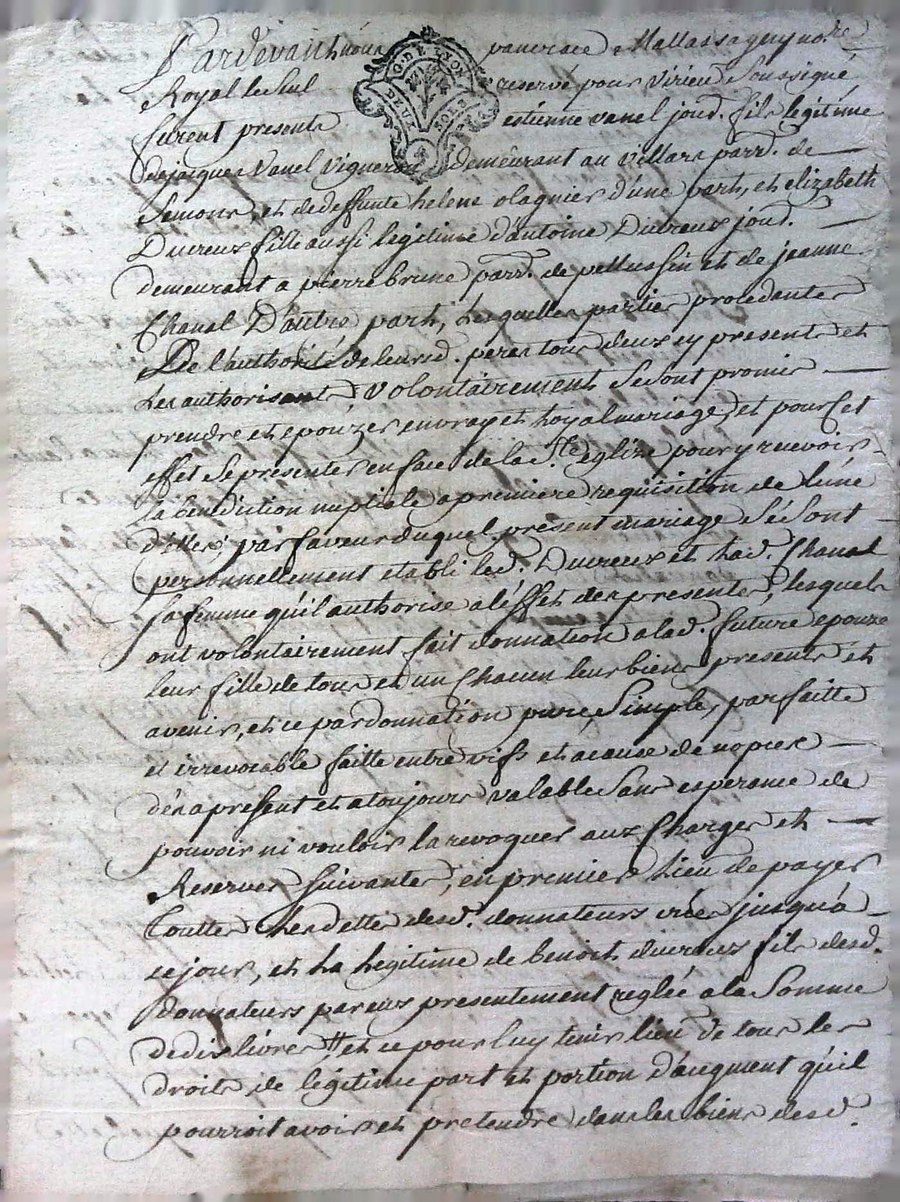 Pardevant nous vanerace Mallassagny no.re
Royal le seul reservé pour virieu soussigné
G. DE LYON
DEUX SOLS
furent presents estienne vanel jourd. fils legitime
de jacques vanel vigneron demeurant au villars parr. de
Semons, et de deffunte helene olagnier d'une part, et elizabeth
Ducreux fille aussi legitime d'antoine Ducreux jourd.
demeurant a pierrebrune parr. de pellussin et de jeanne
Chanal D'autre part, Lesquelles parties procedantes
De l'authorité de leursd. peres tous deux icy presents et
Les authorisants volontairement se sont promis
prendre et epouzer en vray et loyal mariage, et pour Cet
effet se presenter en face de la S.te eglise pour y recevoir
la benediction nuptiale a premiere requisition de L'une
d'elles, par faveur duquel present mariage se sont
personnellement etabli led. Ducreux et lad. Chanal
sa femme qu'il authorise a l'effet des presentes, lesquels
ont volontairement fait donnation a lad. future epouze
leur fille de tous et un Chacun leurs biens presents et
avenir, et ce par donnation pure, simple, parfaitte
et irrevocable faitte entre vifs et a cause de nopces
dès a present et a toujours valable sans esperance de
pouvoir ni vouloir la revoquer aux Charges et
Reserves suivantes, en premier Lieu de payer
touttes Les dettes desd. donnateurs créées jusqu'a
ce jour, et La Legitime de benoit ducreux fils desd.
donnateurs par eux presentement reglée a la somme
de dix livres et ce pour luy tenir lieu de tous les
droits de legitime part et portion d'augment qu'il
pourroit avoir et pretendre dans les biens desd.